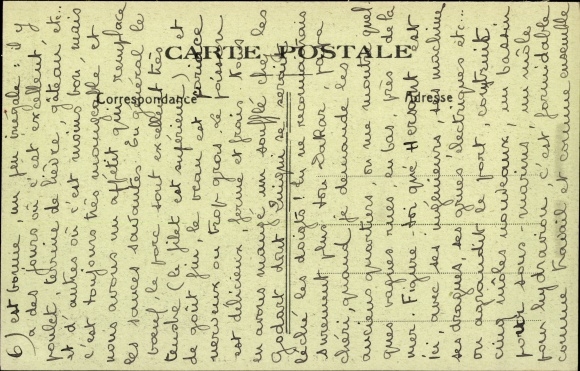 CARTE POSTALE
Correspondance
Adresse
6) est bonne, un peu inégale : il y
a des jours où c'est excellent,
poulet, terrine de lièvre gâteau et...
et d'autres où c'est moins bon, mais
c'est toujours très mangeable et
nous avons un appétit qui remplace
les sauces savantes. En général le
bœuf, le porc sont excellents très
tendre (le filet est supérieur) et
de goût fin, le veau est parfois
nerveux ou trop gras. Le poisson
est délicieux, ferme et frais. Nous
en avons mangé un soufflé chez les
Godart dont Guigui se serait
léché les doigts! Tu ne reconnaitrais
surement plus ton Dakar, papa
chéri, quand je demande les
anciens quartiers, on me montre quel
ques vagues rues en bas, près de la
mer. Figure toi que Hersant est
ici avec ses ingénieurs, ses machines
ses dragues, ses grues électriques et...
on agrandit le port, construit
cinq môles nouveaux, un bassin
pour sous-marins, un môle
pour hydravions, c'est formidable
comme travail et comme ensemble